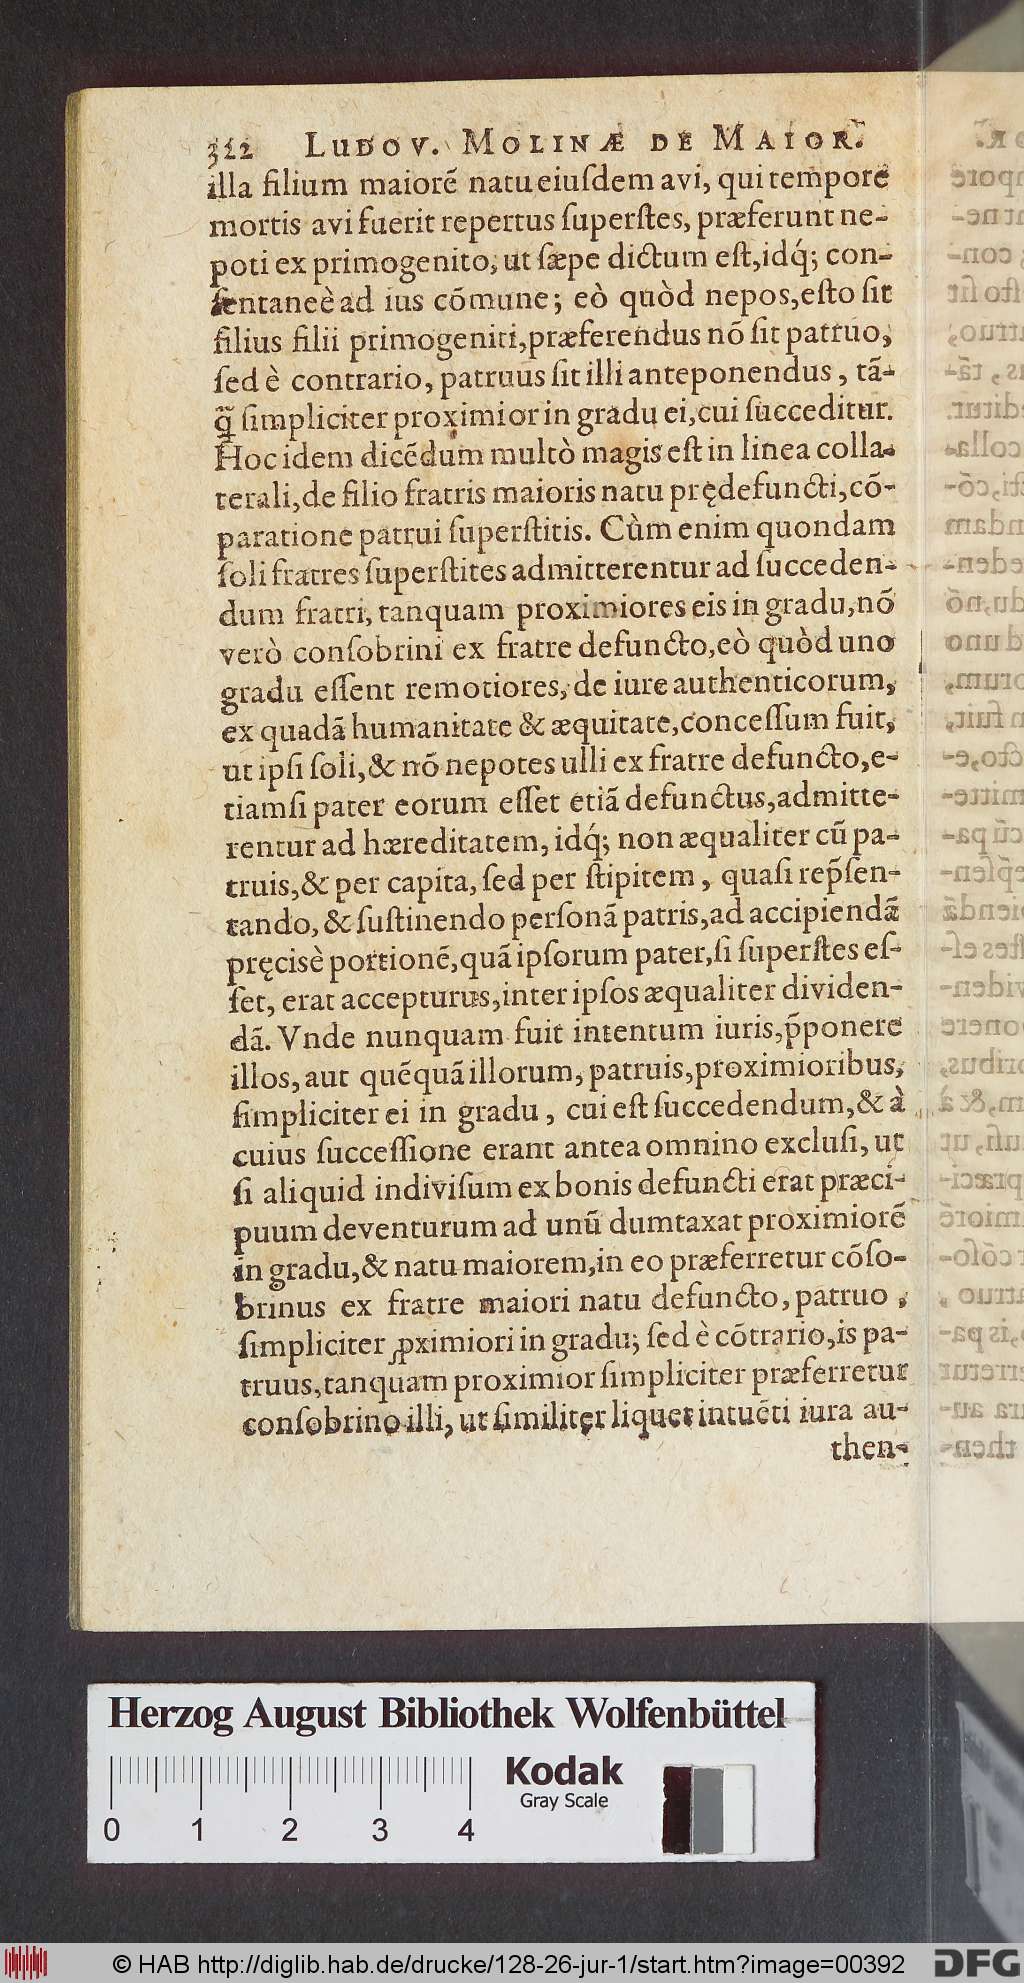 312 LUDOV. MOLINÆ DE MAIOR.
illa filium maiorẽ natu eiuſdem avi, qui tempore
mortis avi fuerit repertus ſuperſtes, præferunt ne-
poti ex primogenito, ut ſæpe dictum eſt, idq́; con-
ſentaneè ad ius cõmune; eò quòd nepos, eſto ſit
filius filii primogeniti, præferendus nõ ſit patruo,
ſed è contrario, patruus ſit illi anteponendus, tã-
q̃ ſimpliciter proximior in gradu ei, cui ſucceditur.
Hoc idem dicẽdum multò magis eſt in linea colla-
terali, de filio fratris maioris natu prędefuncti, cõ-
paratione patrui ſuperſtitis. Cùm enim quondam
ſoli fratres ſuperſtites admitterentur ad ſucceden-
dum fratri, tanquam proximiores eis in gradu, nõ
verò conſobrini ex fratre defuncto, eò quòd uno
gradu eſſent remotiores, de iure authenticorum,
ex quadã humanitate & æquitate, conceſſum fuit,
ut ipſi ſoli, & nõ nepotes ulli ex fratre defuncto, e-
tiamſi pater eorum eſſet etiã defunctus, admitte-
rentur ad hæreditatem, idq́; non æqualiter cũ pa-
truis, & per capita, ſed per ſtipitem, quaſi rep̃ſen-
tando, & ſuſtinendo perſonã patris, ad accipiendã
pręcisè portionẽ, quã ipſorum pater, ſi ſuperſtes eſ-
ſet, erat accepturus, inter ipſos æqualiter dividen-
dã. Vnde nunquam fuit intentum iuris, p̃ponere
illos, aut quẽquã illorum, patruis, proximioribus,
ſimpliciter ei in gradu, cui eſt ſuccedendum, & à
cuius ſucceſſione erant antea omnino excluſi, ut
ſi aliquid indiviſum ex bonis defuncti erat præci-
puum deventurum ad unũ dumtaxat proximiorẽ
in gradu, & natu maiorem, in eo præferretur cõſo-
brinus ex fratre maiori natu defuncto, patruo,
ſimpliciter ꝓximiori in gradu; ſed è cõtrario, is pa-
truus, tanquam proximior ſimpliciter præferretur
conſobrino illi, ut ſimiliter liquet intuẽti iura au-
then-
Herzog August Bibliothek Wolfenbüttel
Kodak
Gray Scale
0 1 2 3 4
© HAB http://diglib.hab.de/drucke/128-26-jur-1/start.htm?image=00392
DFG